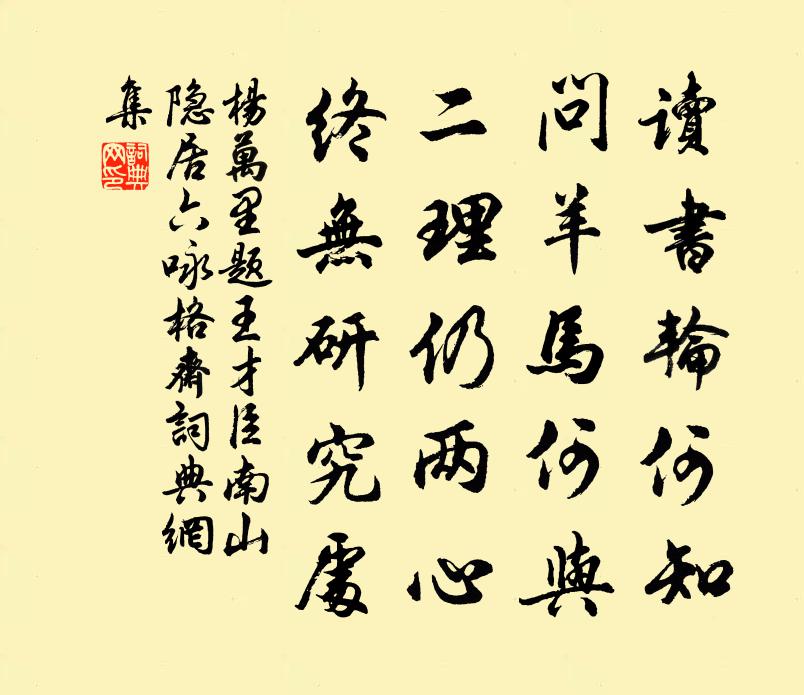 讀書輪何知
問羊馬何與
二理仍两心
終無研究處
楊萬里題王才臣南山
隐居六咏格齋詞典網
集
詞典網印